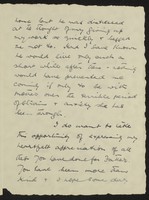 home but he was distressed
at the thought of my giving up
my work so quickly & begged
me not to. Had I have known
he would live only such a
short while after then - nothing
would have prevented me
coming if only to be with
Mother over the terrible period
of strain & anxiety she has
been through.
I do want to take
the opportunity of expressing my
heartfelt appreciation of all
that you have done for Father
You have been more than
kind &